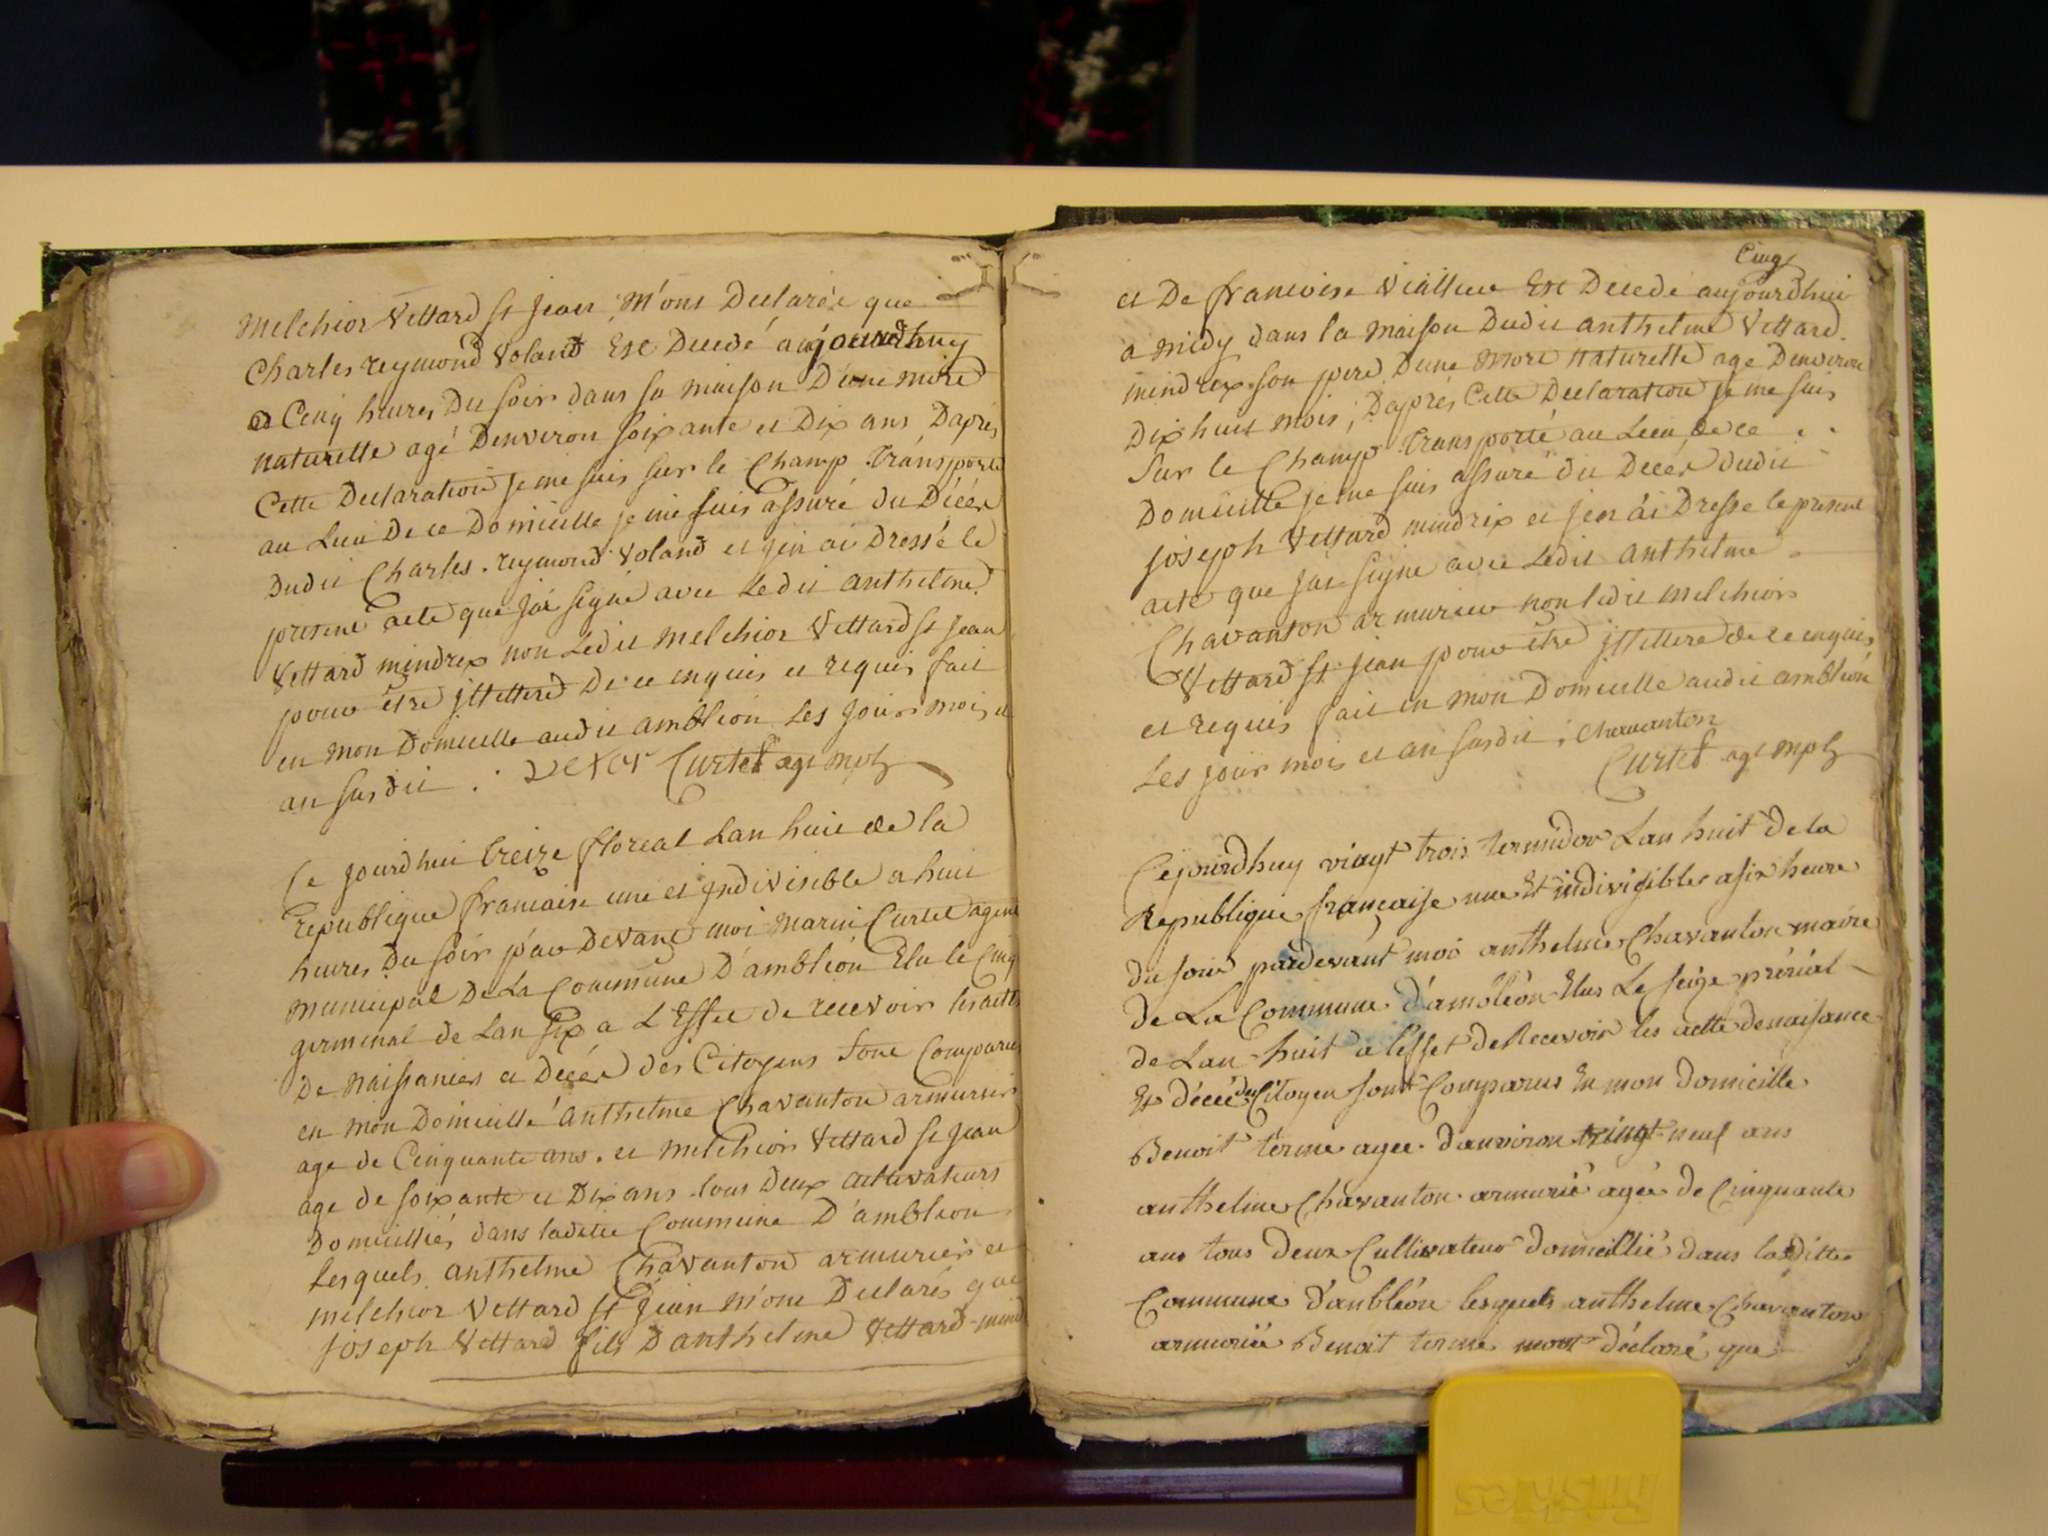 Melchior Vettard st jean, m'ont Declarée que
Charles reymond Voland Est Decedé aujourdhuy
a Cinq heures Du soir dans sa maison D'une mort
naturelle agé Denviron soixante et Dix ans Dapres
Cette Declaration je me suis sur le Champ Transporté
au Lieu De ce Domicille je me suis assuré du Décés
Dudit Charles reymond Voland et j'en ai Dressé le
present acte que j'ai signé avec Ledit anthelme
Vettard mindrex non Ledit melchior Vettard st jean
pour être jllettere De ce enquis et requis fait
en mon Domicille audit ambléon Les jours mois et
an susdit . Curtet agt mpl
Ce jourdhui treize floreal Lan huit de la
republique francaise une et jndivisible a huit
heures Du soir par Devant moi marin Curtet agent
municipal De La Commune D'ambléon Elu le Cinq
germinal de Lan six a L'Effet de recevoir les actes
De naissances et Décés des Citoyens sont Comparus
en mon Domicille anthelme Chavanton armurier
age de Cinquante ans. et melchior Vettard st jean
age de soixante et Dix ans tous Deux cultivateurs
Domicilliés dans ladite Commune D'ambléon
Lesquels anthelme Chavanton armurier et
melchior Vettard st jean m'ont Declarés que
joseph Vettard fils D'anthelme Vettard mind
Cinq
et De francoise Est Decede aujourdhui
a midy dans la maison Dudit anthelme Vettard
mindrex son pere Dune mort naturelle age Denviron
Dix huit mois; D'aprés Cette Declaration je me suis
sur le Champ Transporté au Lieu de ce . .
Domicille je me suis assuré du Décés dudit
joseph Vettard mindrix et j'en ai Dresse le present
acte que j'ai signe avec Ledit anthelme
Chavanton armurier non ledit melchior
Vettard st jean pour être jllettere de ce enquis
et requis fait en mon Domicille audit ambléon
Les jour mois et an susdit ; Chavanton
Curtet agt mpl
Cejourdhuy vingt trois termidor Lan huit de la
Republique française une Et indivisible a six heure
du soir pardevant moi anthelme Chavanton maire
de La Commune d'ambléon Elus Le seize prérial
de Lan huit a l'effet de Recevoir les actte denaisance
Et décéé des Citoyen sont Comparus En mon domicille
Benoit terme agee d'anviron neuf ans
anthelme Chavanton armurié agée de Cinquante
ans tous deux Cultivateur domicillié dans la ditte
Commune d'anbléon lesquels anthelme Chavanton
armurié Benoit terme mont déclaré que